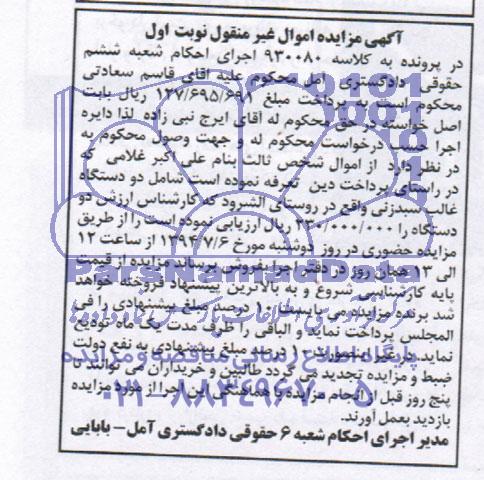 آگهی مزایده اموال غیر منقول نوبت اول
در پرونده به کلاسه ۹۳۰۰۸۰ اجرای احکام شعبه ششم
حقوقی دادگستری آمل محکوم علیه آقای قاسم سعادتی
محکوم است به پرداخت مبلغ ۱۲۷/۶۹۵/۶۹۱ ریال بابت
اصل خواسته در حق محکوم له آقای ایرج نبی زاده لذا دایره
اجرا حسب درخواست محکوم له و جهت وصول محکوم به
در نظر دارد از اموال شخص ثالث بنام علی اکبر غلامی که
در راستای پرداخت دین تعرفه نموده است شامل دو دستگاه
واقع در روستای الشرود که کارشناس ارزش دو
دستگاه را ۲۳۰/۰۰۰/۰۰۰ ریال ارزیابی نموده است را از طریق
مزایده حضوری در روز دوشنبه مورخ ۱۳۹۴/۷/۶ از ساعت ۱۲
الی ۱۳ همان روز در دفتر اجرا بفروش برساند مزایده از قیمت
پایه کارشناسی شروع و به بالاترین پیشنهاد فروخته خواهد
شد برنده مزایده می بایست ۱۰ درصد مبلغ پیشنهادی را فی
المجلس پرداخت نماید و الباقی را ظرف مدت یک ماه تودیع
نماید در غیر اینصورت ۱۰ درصد مبلغ پیشنهادی به نفع دولت
ضبط و مزایده تجدید می گردد طالبین و خریداران می توانند تا
پنج روز قبل از انجام مزایده با هماهنگی این اجرا از مورد مزایده
بازدید بعمل آورند.
مدیر اجرای احکام شعبه ۶ حقوقی دادگستری آمل – بابایی
ParsNamadData
پایگاه اطلاع رسانی مناقصه و مزایده
۰۲۱-۸۸۳۴۹۶۷۰-۵